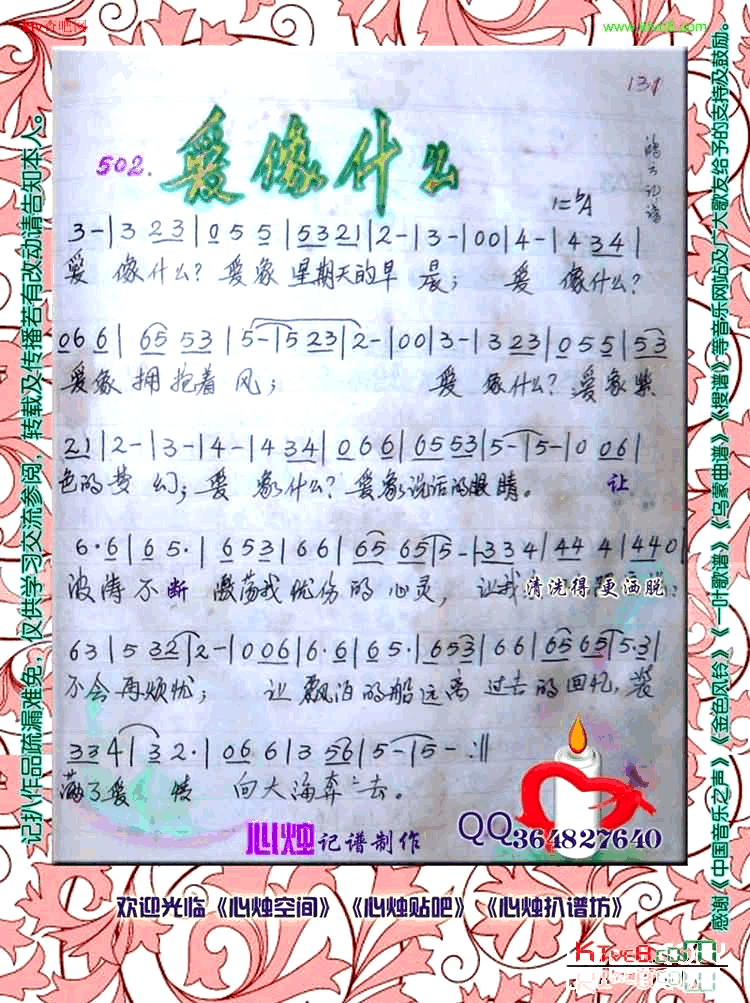 www.ktvc8.com
131
502. 爱像什么
1=bA
3 - | 3 2 3 | 0 5 5 | 5 3 2 1 | 2 - | 3 - | 0 0 | 4 - | 4 3 4 |
爱 像什么? 爱象 星期天的早 晨; 爱 像什么?
0 6 6 | 6 5 5 3 | 5 - | 5 2 3 | 2 - | 0 0 | 3 - | 3 2 3 | 0 5 5 | 5 3
爱象 拥抱着 风; 爱 象什么? 爱象紫
2 1 | 2 - | 3 - | 4 - | 4 3 4 | 0 6 6 | 6 5 5 3 | 5 - | 5 - | 0 0 6 |
色的梦 幻; 爱 象什么? 爱象说话的眼睛。 让
6 · 6 | 6 5 · | 6 5 3 | 6 6 | 6 5 6 5 | 5 - | 3 3 4 | 4 4 4 | 4 4 0 |
波涛不断 激荡我忧伤的 心灵, 让我 清洗得更洒脱;
6 3 | 5 3 2 | 2 - | 0 0 6 | 6 · 6 | 6 5 · | 6 5 3 | 6 6 | 6 5 6 5 | 5 · 3 |
不会再烦忧; 让飘泊的船远离 过去的回忆, 装
3 3 4 | 3 2 · | 0 6 6 | 3 5 6 | 5 - | 5 - :||
满了爱 情 向大海奔去。
心烛记谱制作
QQ364827640
欢迎光临《心烛空间》《心烛贴吧》《心烛扒谱坊》
记扒作品疏漏难免，仅供学习交流参阅，转载及传播若有改动请告知本人。
感谢《中国音乐之声》《金色风铃》《一叶歌谱》《乌蒙曲谱》《搜谱》等音乐网站及广大歌友给予的支持及鼓励。
KTvc8.com